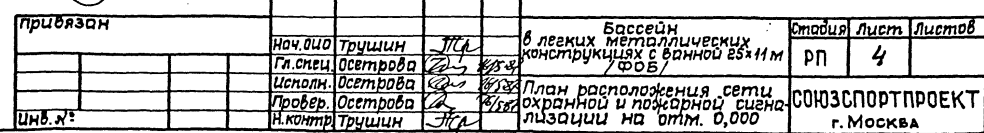 привязан
Инв.№:
Нач.ОИО Трушин
Гл.спец. Осетрова
Исполн. Осетрова
Провер. Осетрова
Н.контр. Трушин
Бассейн
в легких металлических
конструкциях с ванной 25×11 м
/ФОБ/
План расположения сети
охранной и пожарной сигна-
лизации на отм. 0,000
Стадия Лист Листов
РП 4
СОЮЗСПОРТПРОЕКТ
г. Москва